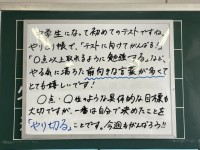 中学生になって初めてのテストですね。
やり切り帳で、「テストに向けてがんばる！」
「○点以上取れるように勉強する。」など、
やる気に満ちた前向きな言葉が多くて
とても嬉しいです！
○点・○位のような具体的な目標も
大切ですが、一番は自分で決めたことを
「やり切る」ことです。今週もがんばろう!!